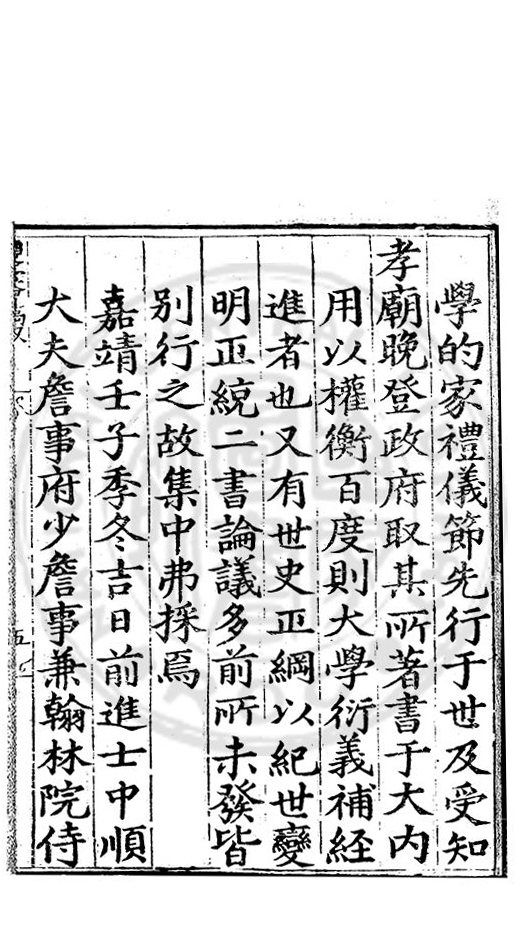 學的家禮儀節先行于世及受知
孝廟晚登政府取其所著書于大内
用以權衡百度則大學衍義補經
進者也又有世史正綱以紀世變
明正統二書論議多前所未發皆
别行之故集中弗採焉
嘉靖壬子季冬吉日前進士中順
大夫詹事府少詹事兼翰林院侍